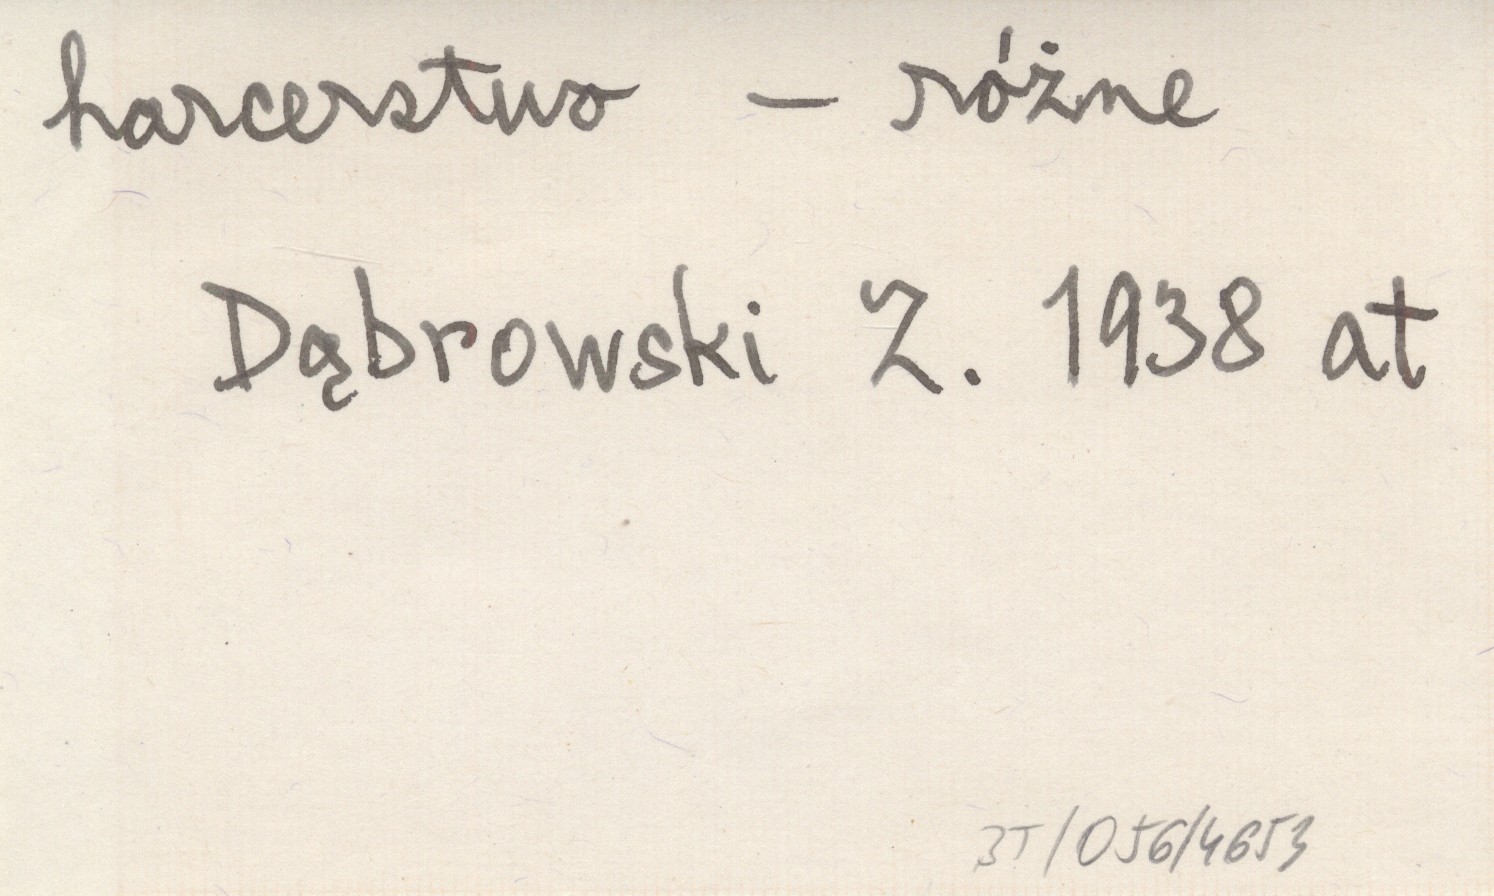 harcerstwo – różne
Dąbrowski Z. 1938 at
3T/056/4653